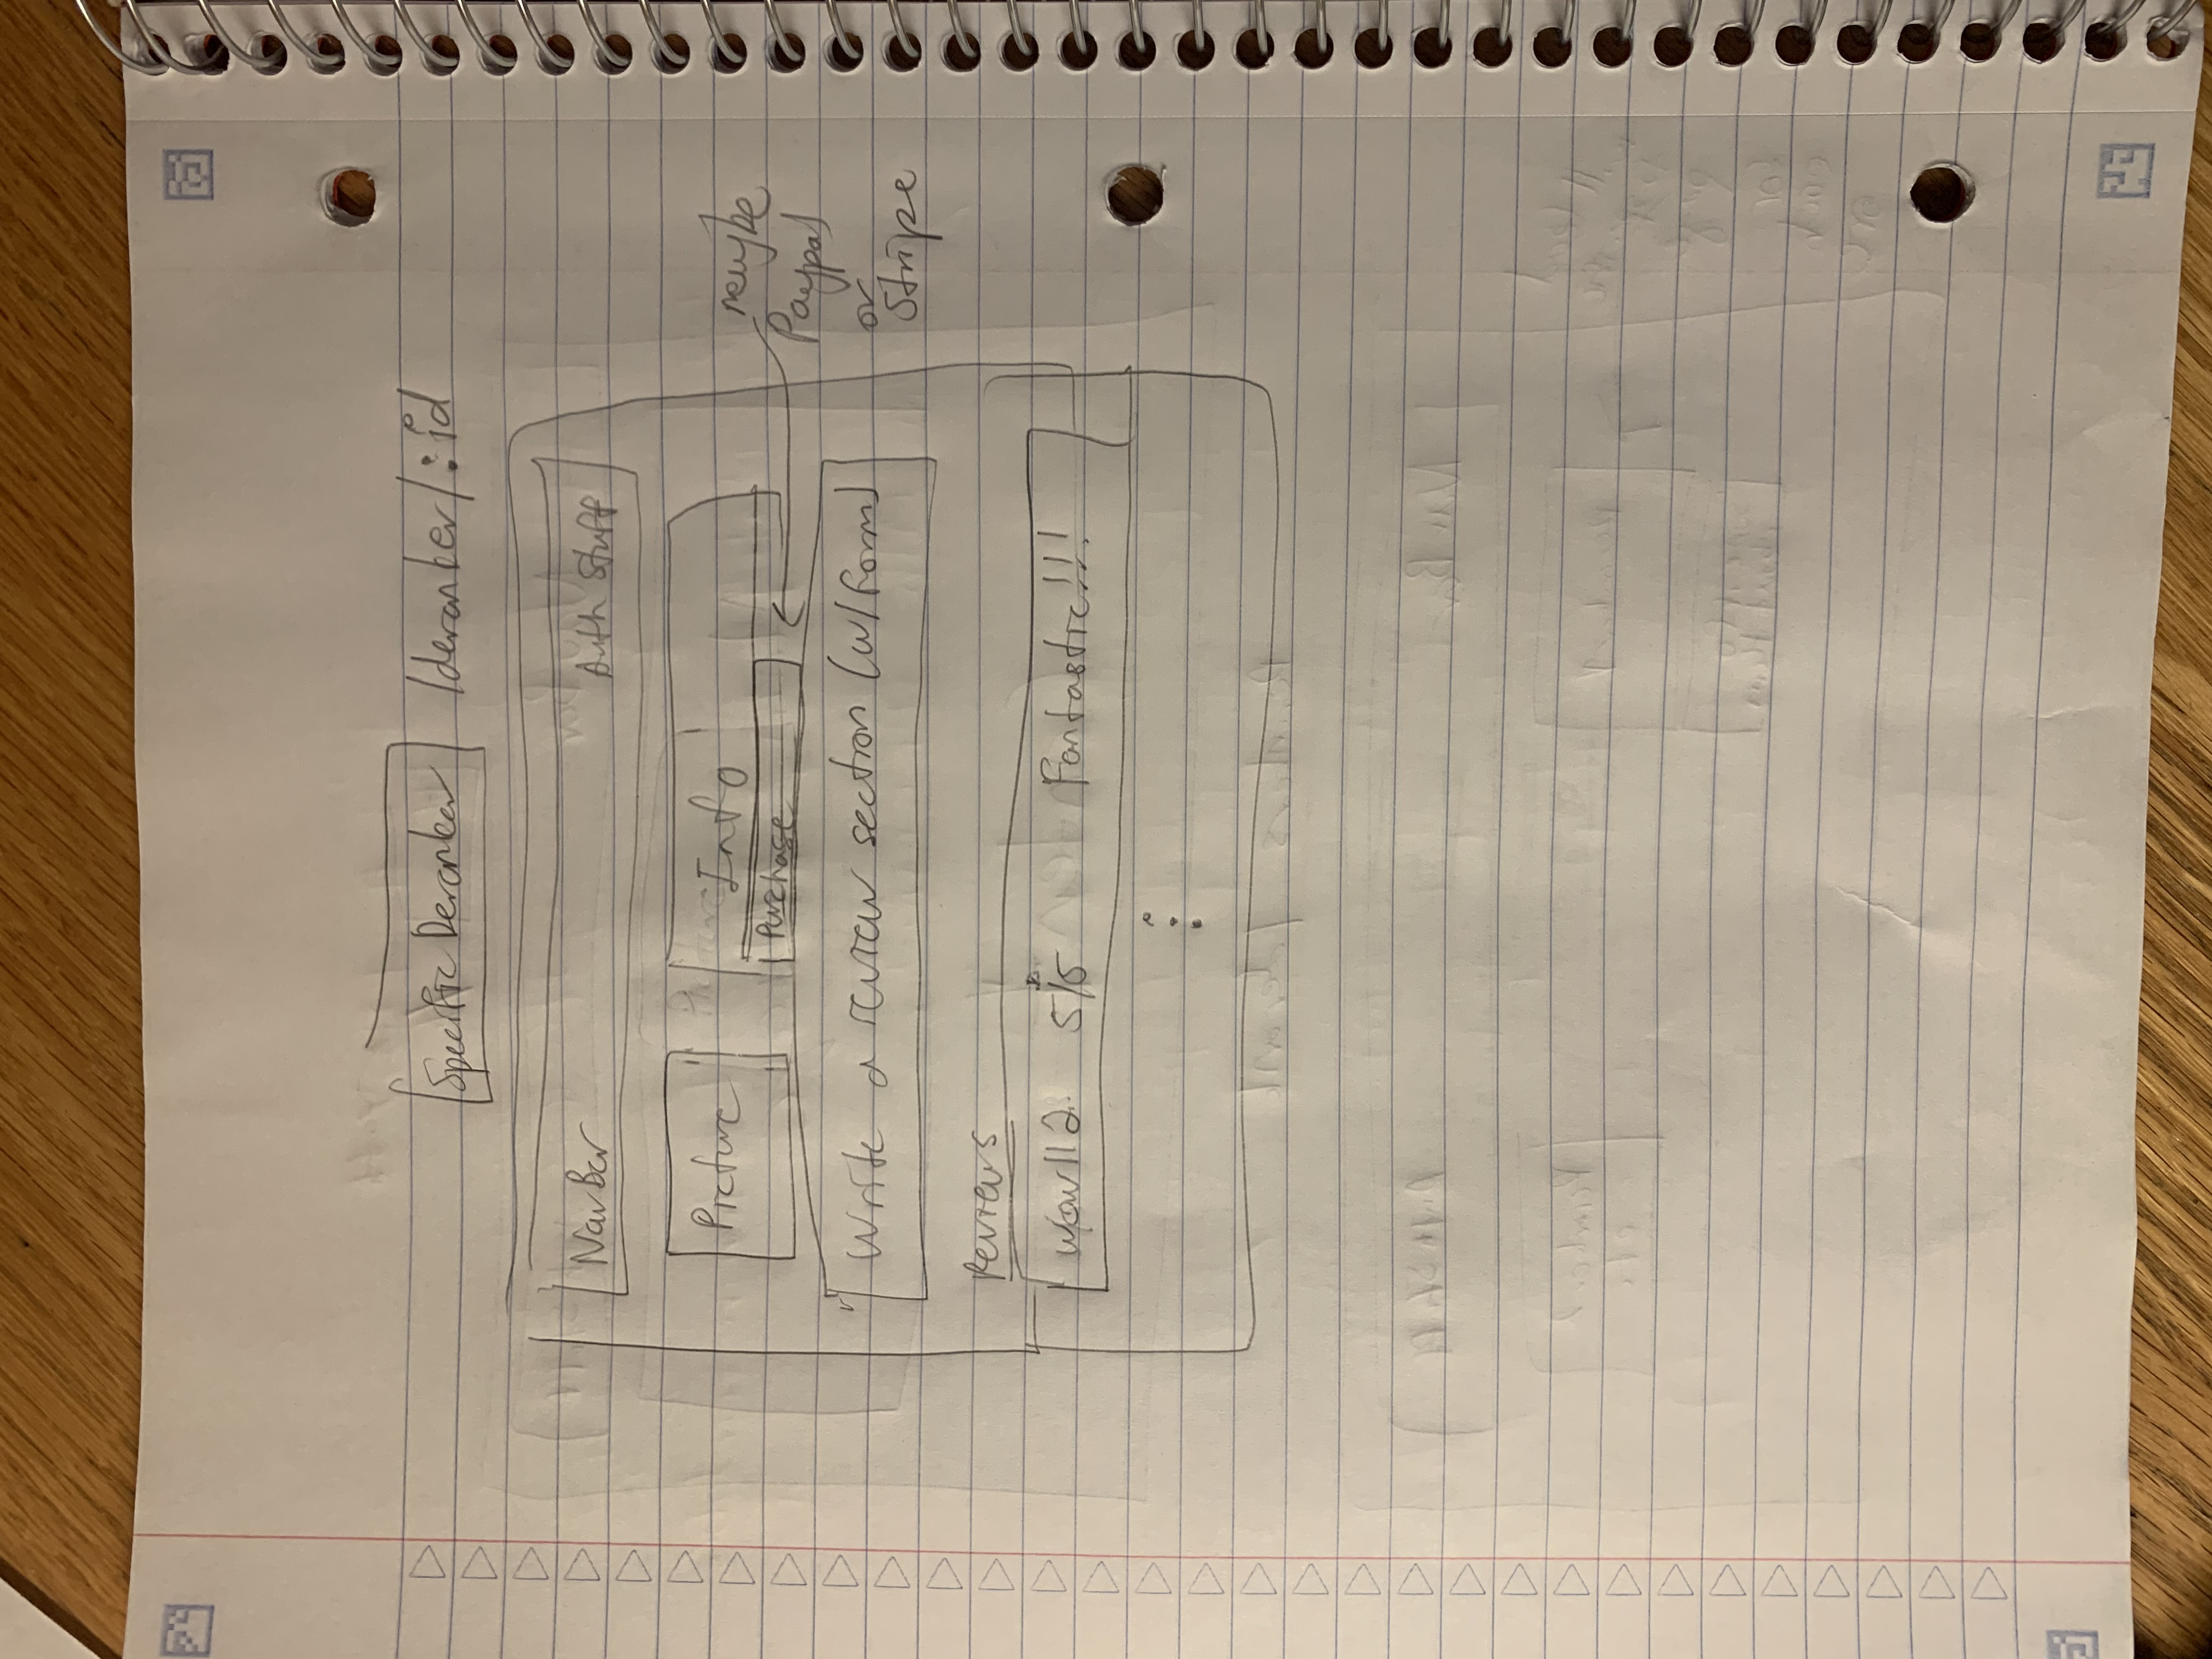 Specific Deranker /deranker/:id
NavBar Auth Stuff
Picture Info
Purchase
maybe
Paypal
or
Stripe
Write a review section (w/form)
Reviews
5/5 Fantastic!!!